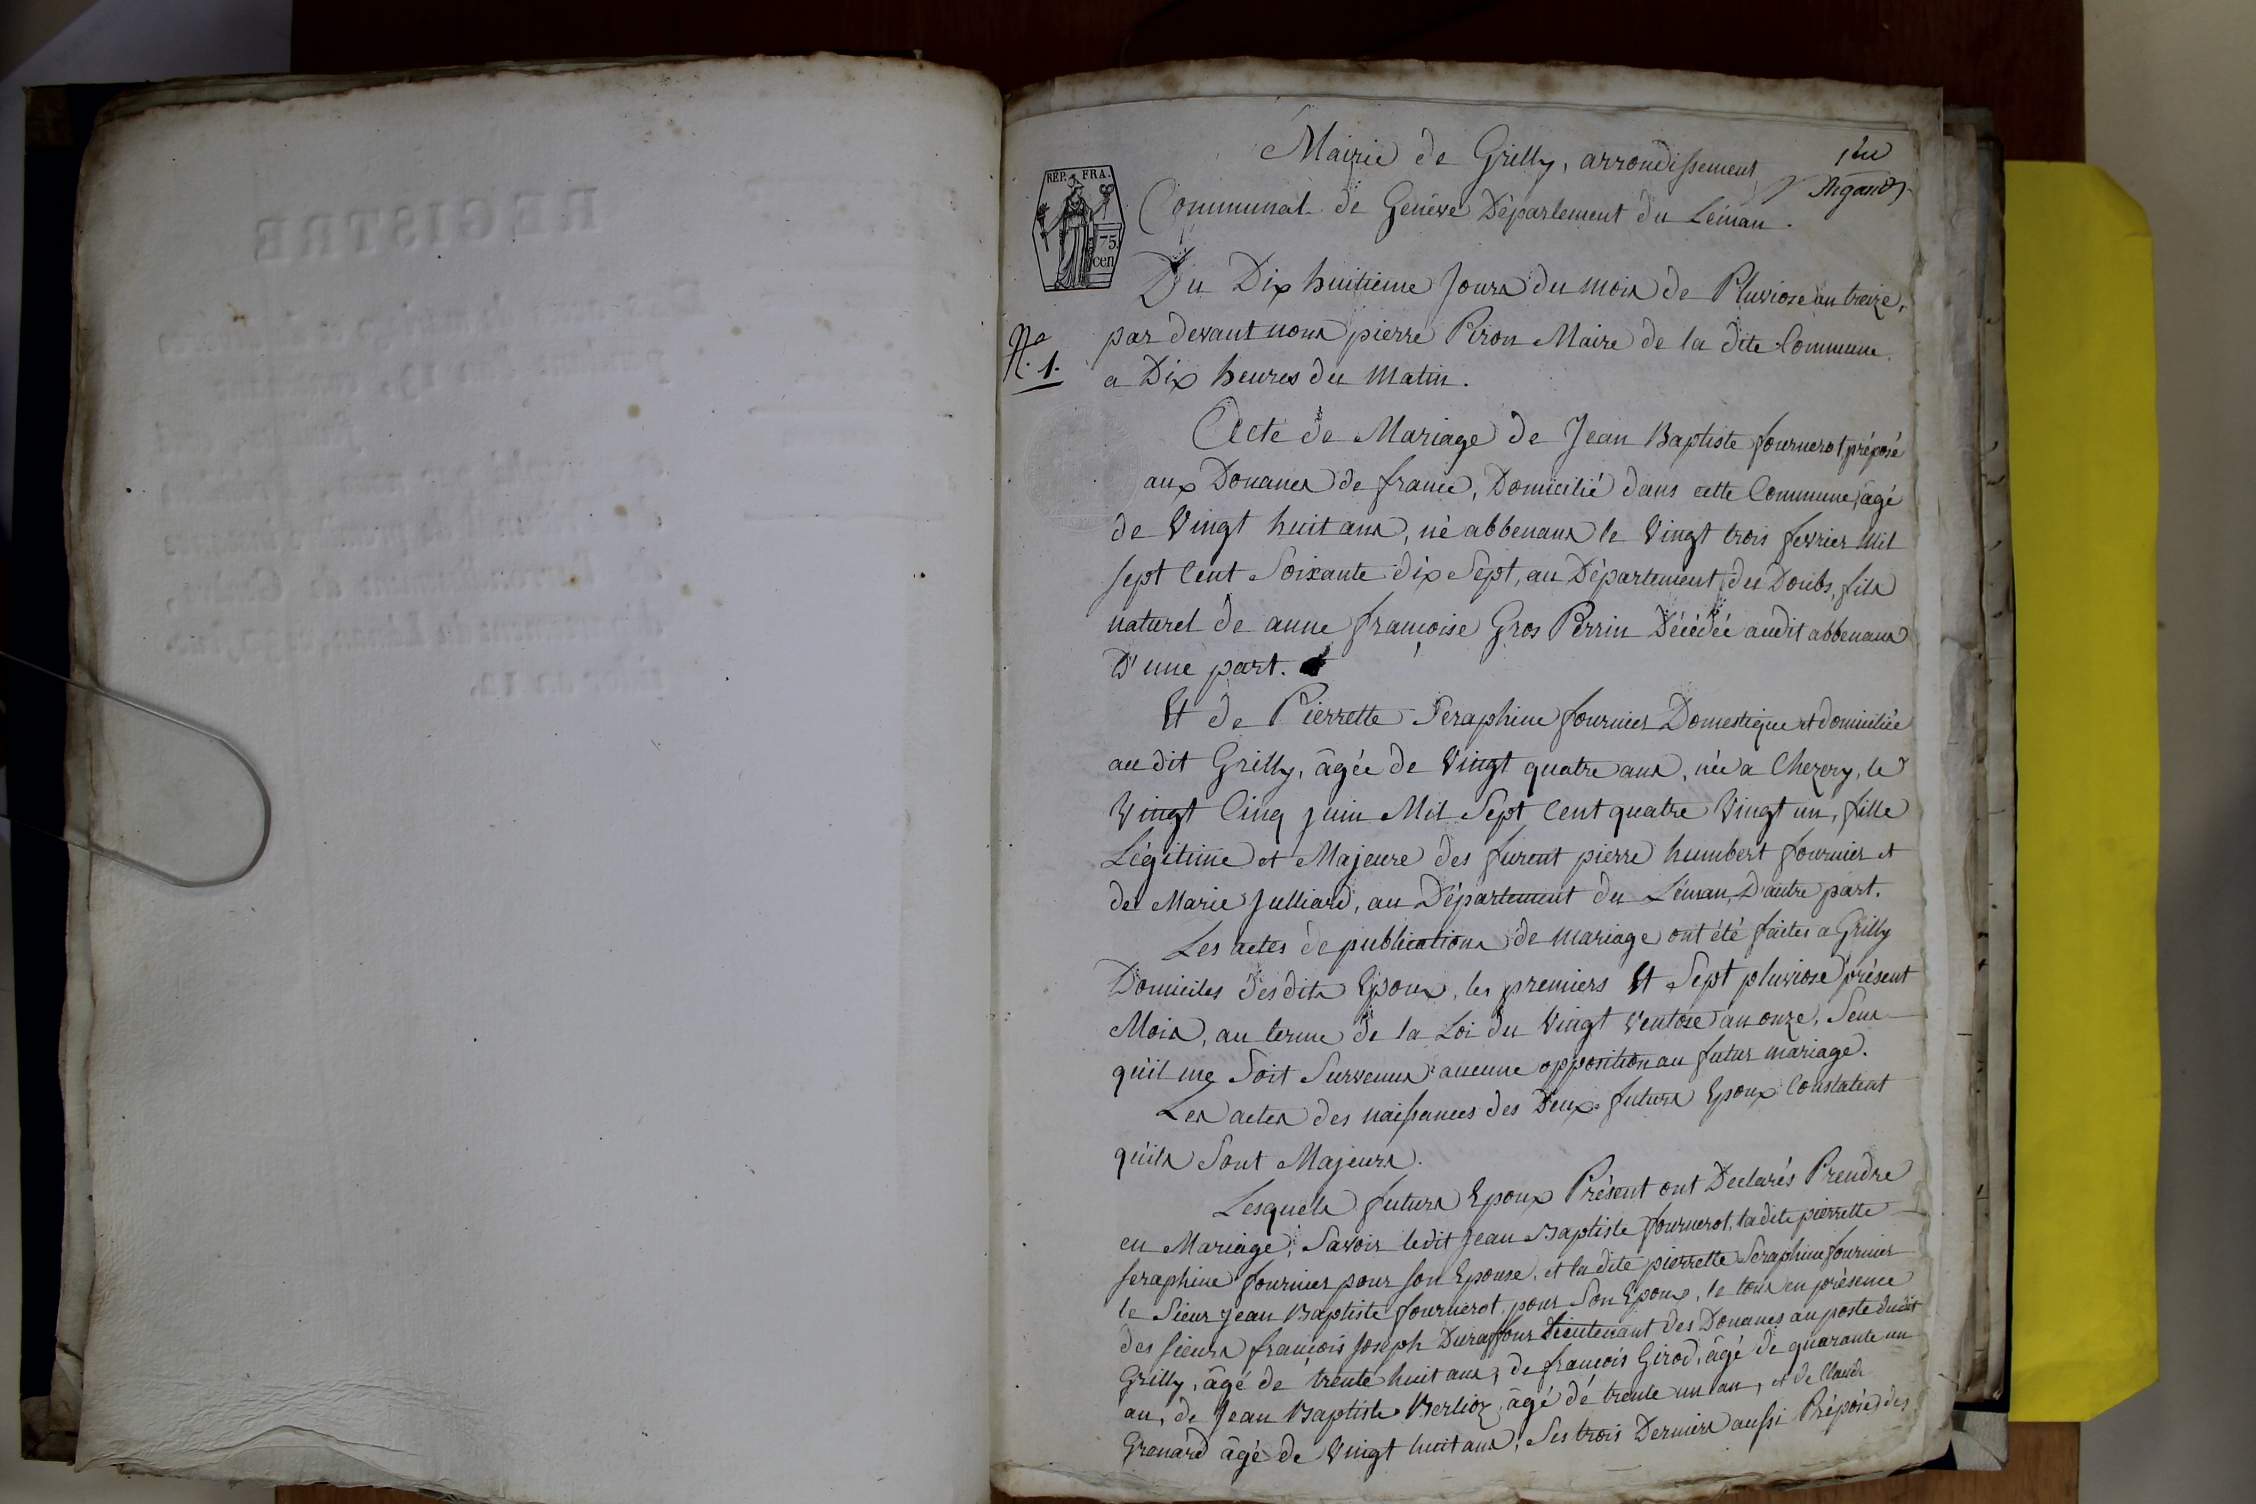 Mairie de Grilly, arrondissement
Communal de Genève Département du Léman.
REP. FRA.
75.
cen
Du Dix huitieme Jours du mois de Pluviose an treize,
par devant nous pierre Piron Maire de la dite Commune
a Dix heures du Matin.
N.º 1.
Acte de Mariage de Jean Baptiste fournerot préposé
aux Douanes de france, Domicilié dans cette Commune, âgé
de Vingt huit ans, né abbenans le Vingt trois fevrier Mil
sept Cent Soixante dix Sept, au Département du Doubs, fils
naturel de anne françoise Gros Perrin Décédée audit abbenans
D'une part.
Et de Pierrette Seraphine fournier Domestique et domiciliée
au dit Grilly, âgée de Vingt quatre ans, née a Chezery, le
Vingt Cinq juin Mil Sept Cent quatre Vingt un, fille
Légitime et Majeure des furent pierre humbert fournier et
de Marie Julliard, au Département du Léman, D'autre part.
Les actes de publications de mariage ont été faites a Grilly
Domiciles desdits Epoux, les premiers Et Sept pluviose présent
Mois, au terme de la Loi du Vingt Ventose an onze, Sens
qu'il me Soit Survenus aucune opposition au futur mariage.
Les actes des naissances des Deux futurs Epoux Constatent
qu'ils Sont Majeurs.
Lesquels futurs Epoux Présent ont Déclarés Prendre
en Mariage, Savoir ledit Jean Baptiste fournerot, ladite pierrette
seraphine fournier pour son Epouse, et la dite pierrette Seraphine fournier
le Sieur Jean Baptiste fournerot, pour Son Epoux, le tous en présence
des sieurs françois Joseph Duraffour Lieutenant des Douanes au poste dudit
Grilly, âgé de trente huit ans, de françois Girod, âgé de quarante un
an, de Jean Baptiste Berlioz, âgé de trente un an, et de Claude
Grenard âgé de Vingt huit ans, Ses trois Derniers aussi Préposé des